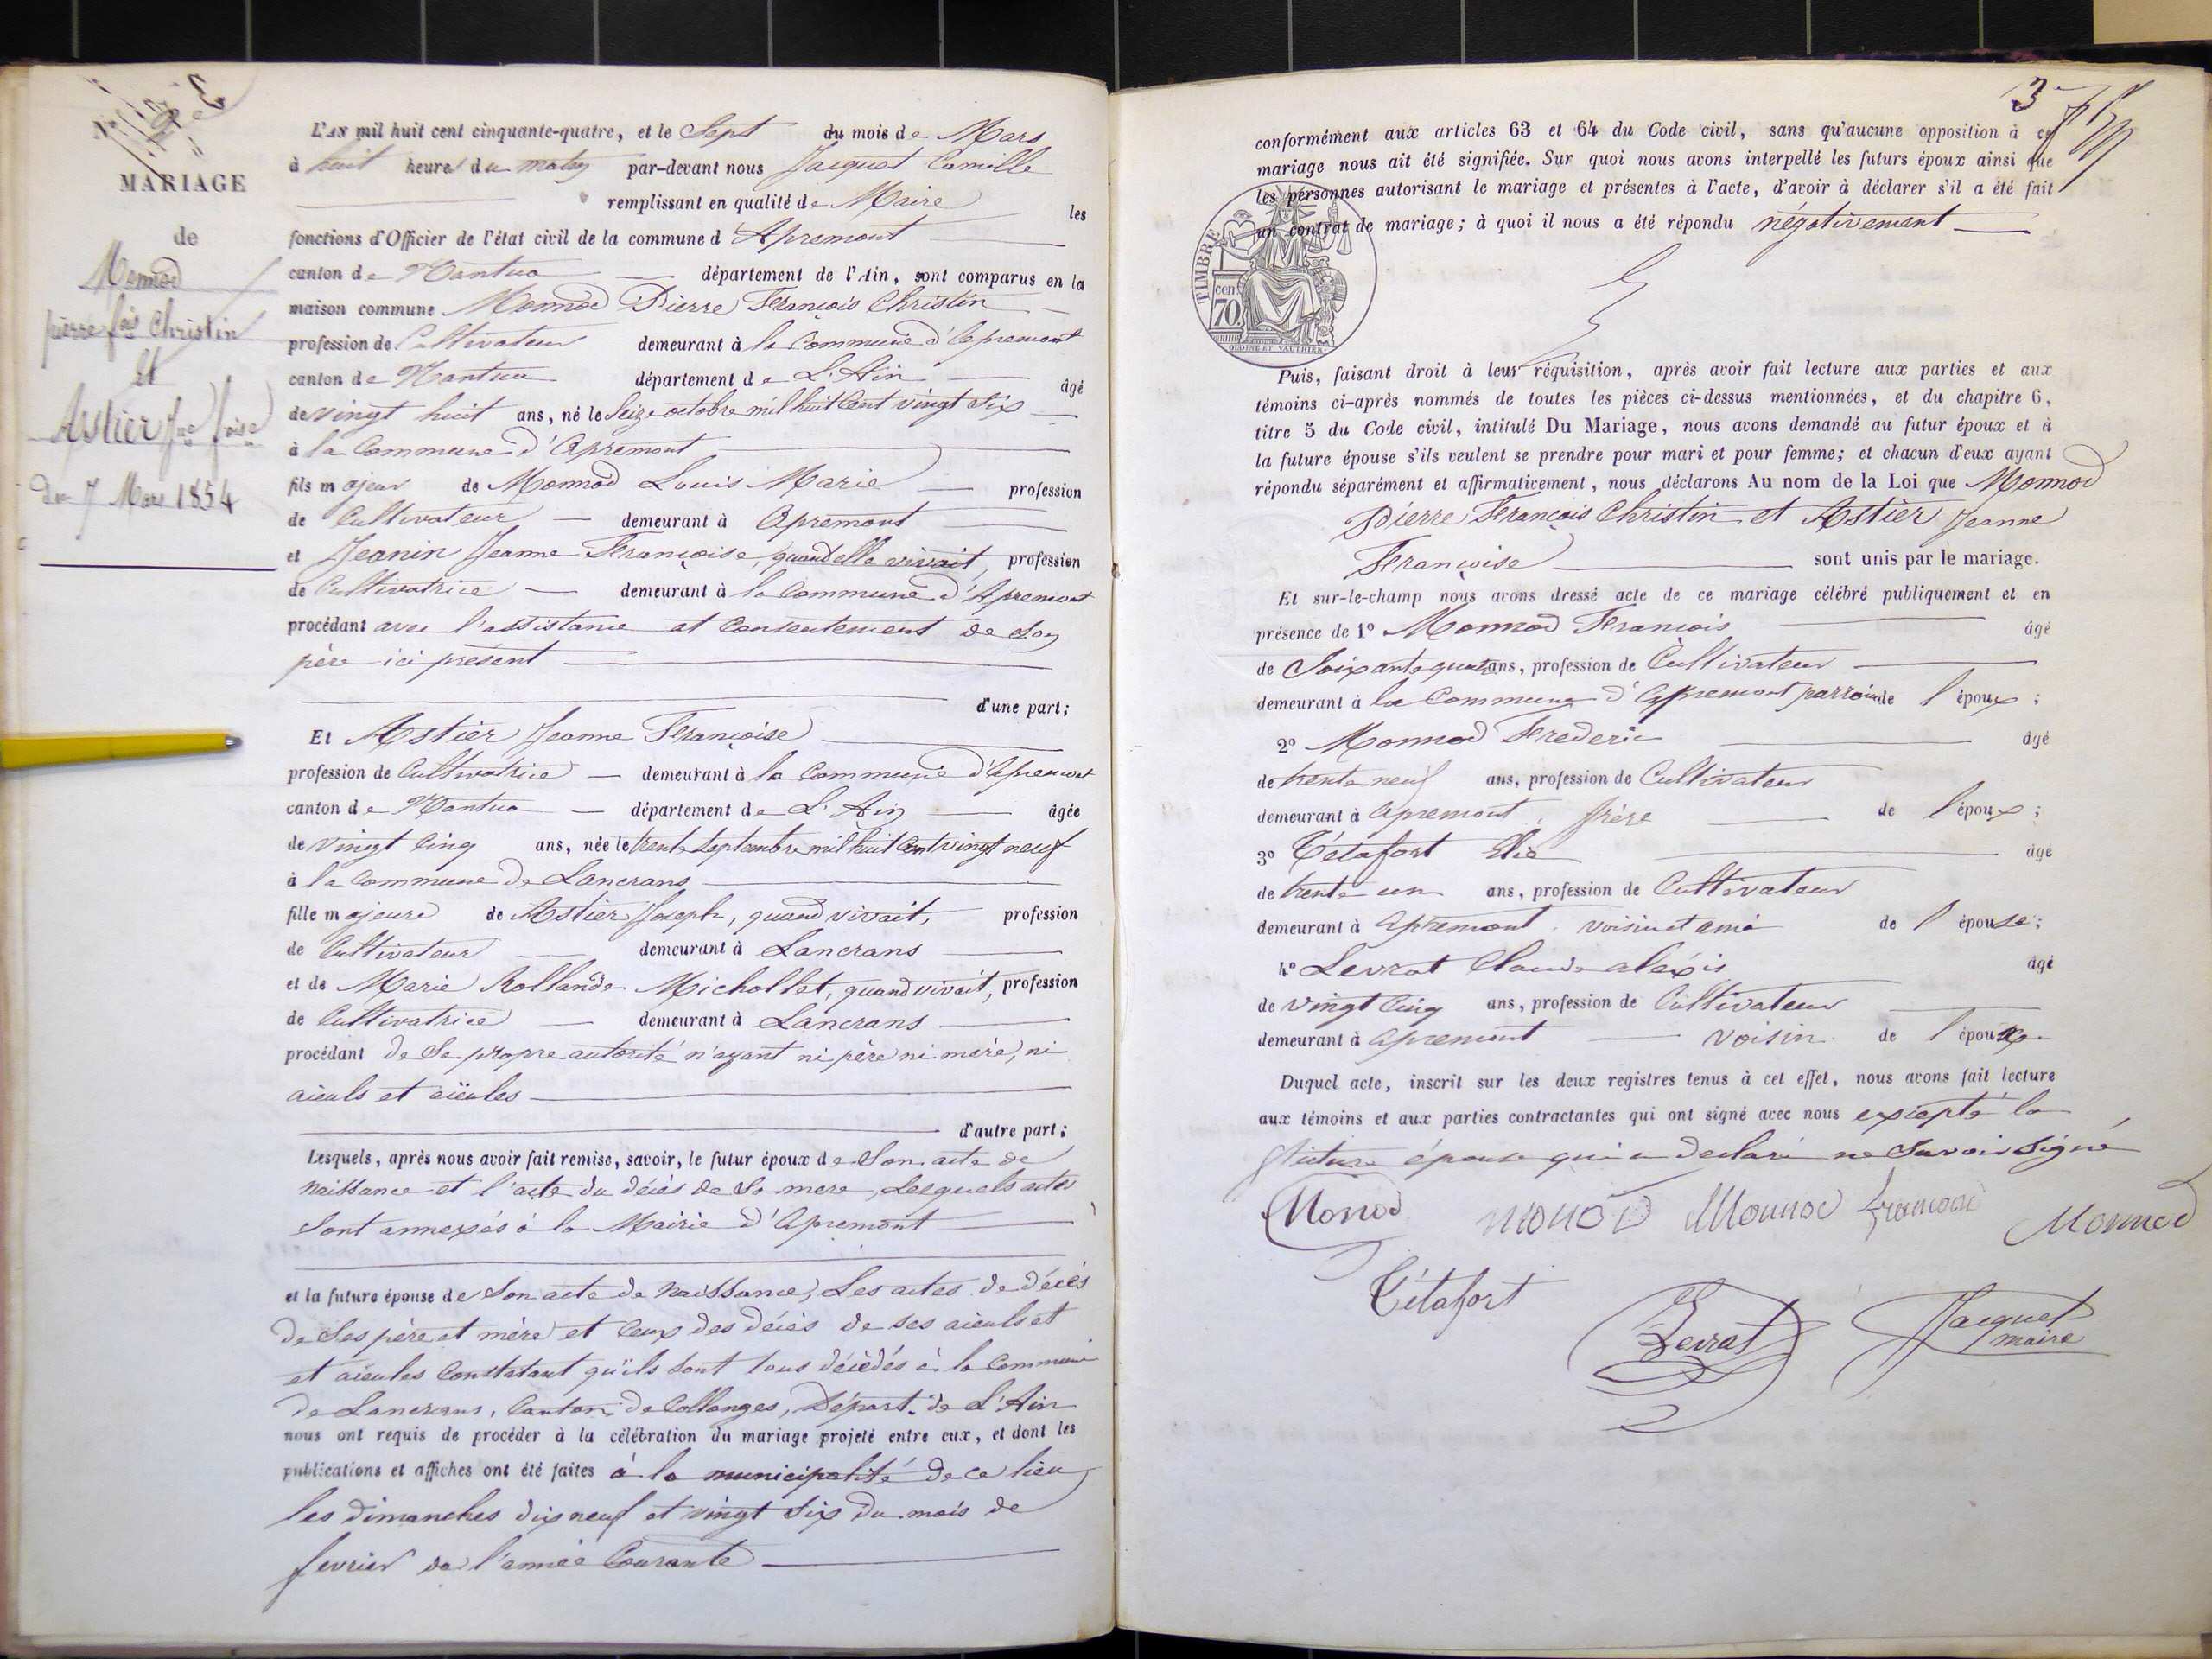 N° 2
MARIAGE
de
Monnod
pierre fois Christin
et
Astier Jne foise
du 7 Mars 1854
L'AN mil huit cent cinquante-quatre, et le Sept du mois de Mars
à huit heures du matin par-devant nous Jacquet Camille
remplissant en qualité de Maire les
fonctions d'Officier de l'état civil de la commune d'Apremont
canton de Nantua département de l'Ain, sont comparus en la
maison commune Monnod Pierre François Christin
profession de Cultivateur demeurant à la Commune d'Apremont
canton de Nantua département de L'Ain âgé
de vingt huit ans, né le Seize octobre mil huit Cent vingt Six
à la Commune d'Apremont
fils majeur de Monnod Louis Marie profession
de Cultivateur demeurant à Apremont
et Jeanin Jeanne Françoise, quand elle vivait, profession
de Cultivatrice demeurant à la Commune d'Apremont
procédant avec l'assistance et Consentement de Son
père ici présent
d'une part;
Et Astier Jeanne Françoise
profession de Cultivatrice demeurant à la Commune d'Apremont
canton de Nantua département de L'Ain âgée
de vingt Cinq ans, née le trente Septembre mil huit Cent vingt neuf
à la Commune de Lancrans
fille majeure de Astier Joseph, quand vivait, profession
de Cultivateur demeurant à Lancrans
et de Marie Rollande Michollet, quand vivait, profession
de Cultivatrice demeurant à Lancrans
procédant de Sa propre autorité n'ayant ni père ni mère, ni
aieuls et aïeules
d'autre part;
Lesquels, après nous avoir fait remise, savoir, le futur époux de Son acte de
naissance et l'acte du décès de Sa mere, Lesquels actes
Sont annexés à la Mairie d'Apremont
et la future épouse de Son acte de naissance, Les actes de décès
de Ses père et mère et Ceux des décès de ses aieuls et
et aieules Constatant qu'ils Sont tous décédés à la Commune
de Lancrans, Canton de Collonges, Départ. de L'Ain
nous ont requis de procéder à la célébration du mariage projeté entre eux, et dont les
publications et affiches ont été faites à la municipalité de ce lieu
les dimanches dix neuf et vingt Six du mois de
fevrier de l'année Courante
3
conformément aux articles 63 et 64 du Code civil, sans qu'aucune opposition à ce
mariage nous ait été signifiée. Sur quoi nous avons interpellé les futurs époux ainsi que
les personnes autorisant le mariage et présentes à l'acte, d'avoir à déclarer s'il a été fait
un contrat de mariage; à quoi il nous a été répondu négativement
TIMBRE
cen.
70
OUDINE ET VAUTHIER
Puis, faisant droit à leur réquisition, après avoir fait lecture aux parties et aux
témoins ci-après nommés de toutes les pièces ci-dessus mentionnées, et du chapitre 6,
titre 5 du Code civil, intitulé Du Mariage, nous avons demandé au futur époux et à
la future épouse s'ils veulent se prendre pour mari et pour femme; et chacun d'eux ayant
répondu séparément et affirmativement, nous déclarons Au nom de la Loi que Monnod
Pierre François Christin et Astier Jeanne
Françoise sont unis par le mariage.
Et sur-le-champ nous avons dressé acte de ce mariage célébré publiquement et en
présence de 1° Monnod François âgé
de Soixante ans, profession de Cultivateur
demeurant à la Commune d'Apremont parrain de l'époux;
2° Monnod Frederic âgé
de trente neuf ans, profession de Cultivateur
demeurant à Apremont, frère de l'époux;
3° Tétafort Elie âgé
de trente un ans, profession de Cultivateur
demeurant à Apremont voisin et ami de l'épouse;
4° Levrat Claude alexis âgé
de vingt Cinq ans, profession de Cultivateur
demeurant à Apremont voisin de l'époux
Duquel acte, inscrit sur les deux registres tenus à cet effet, nous avons fait lecture
aux témoins et aux parties contractantes qui ont signé avec nous excepté la
future épouse qui a declaré ne Savoir Signé
Monod monod Monnod francois Monnod
Tétafort Levrat Jacquet
maire